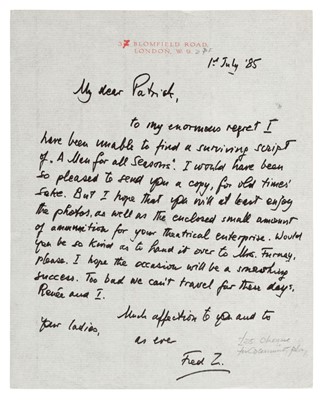 37 BLOMFIELD ROAD,
LONDON, W.9.
1st July '85
My dear Patrick,
to my enormous regret I
have been unable to find a surviving script
of "A Man for all Seasons". I would have been
so pleased to send you a copy, for old times'
sake. But I hope that you will at least enjoy
the photos, as well as the enclosed small amount
of ammunition for your theatrical enterprise. Would
you be so kind as to hand it over to Mrs. Furnay,
please. I hope the occasion will be a smashing
success. Too bad we can't travel far these days,
Renée and I.
Much affection to you and to
your ladies,
as ever
Fred Z.